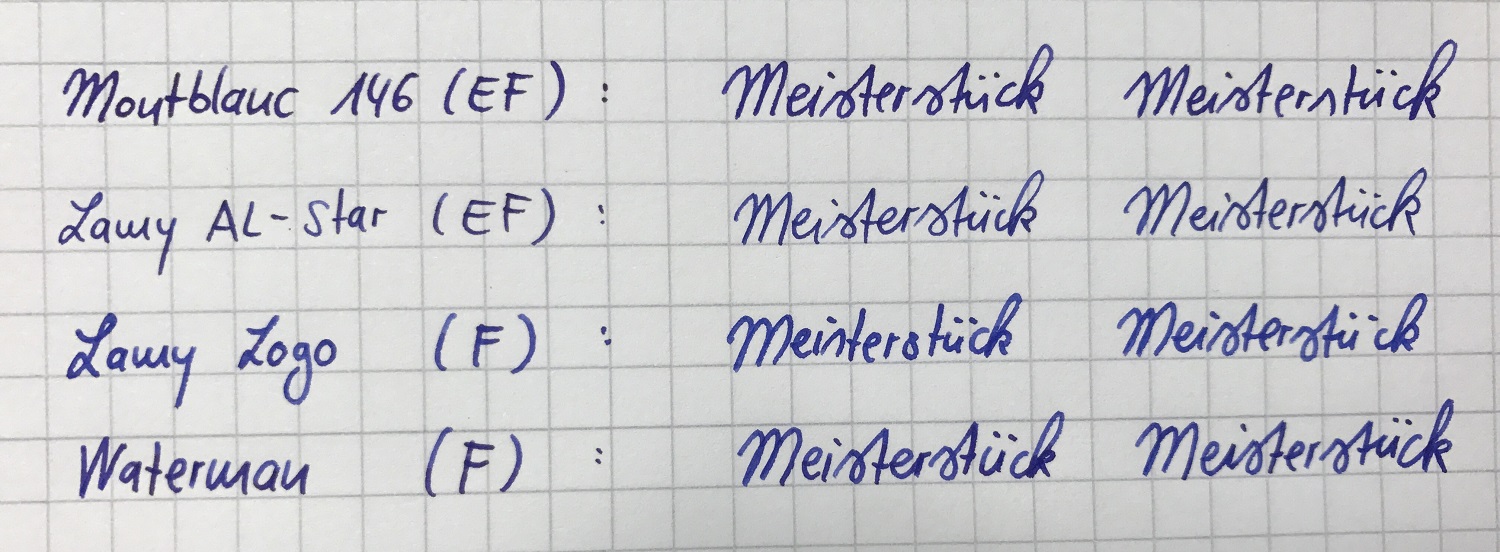 Montblanc 146 (EF) : Meisterstück Meisterstück
Lamy AL-Star (EF) : Meisterstück Meisterstück
Lamy Logo (F) : Meisterstück Meisterstück
Waterman (F) : Meisterstück Meisterstück